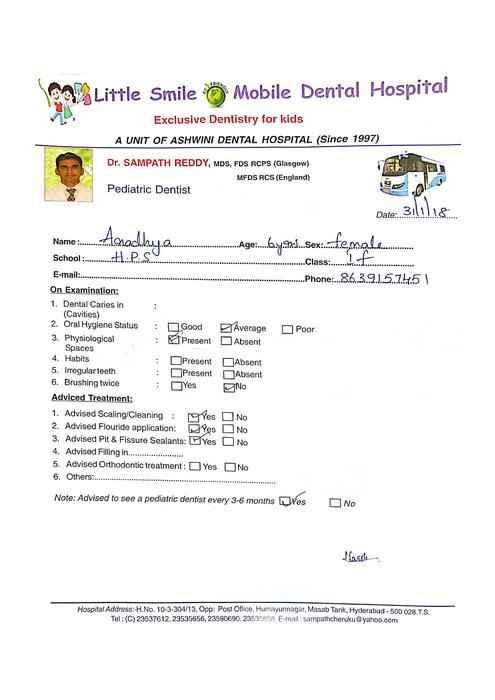 Little Smile Mobile Dental Hospital
Exclusive Dentistry for kids
A UNIT OF ASHWINI DENTAL HOSPITAL (Since 1997)
Dr. SAMPATH REDDY, MDS, FDS RCPS (Glasgow)
MFDS RCS (England)
Pediatric Dentist
Date: 31/1/18
Name: Aaradhya Age: 6yrs Sex: female
School: H.P.S Class: 1 f
E-mail: Phone: 8639157451
On Examination:
1. Dental Caries in :
(Cavities)
2. Oral Hygiene Status : Good Average Poor
3. Physiological : Present Absent
Spaces
4. Habits : Present Absent
5. Irregular teeth : Present Absent
6. Brushing twice : Yes No
Adviced Treatment:
1. Advised Scaling/Cleaning : Yes No
2. Advised Flouride application: Yes No
3. Advised Pit & Fissure Sealants: Yes No
4. Advised Filling in
5. Advised Orthodontic treatment : Yes No
6. Others:
Note: Advised to see a pediatric dentist every 3-6 months Yes No
Hospital Address:-H.No. 10-3-304/13, Opp: Post Office, Humayurnagar, Masab Tank, Hyderabad - 500 028.T.S.
Tel : (C) 23537612, 23535656, 23590690, E-mail : sampathcheruku@yahoo.com